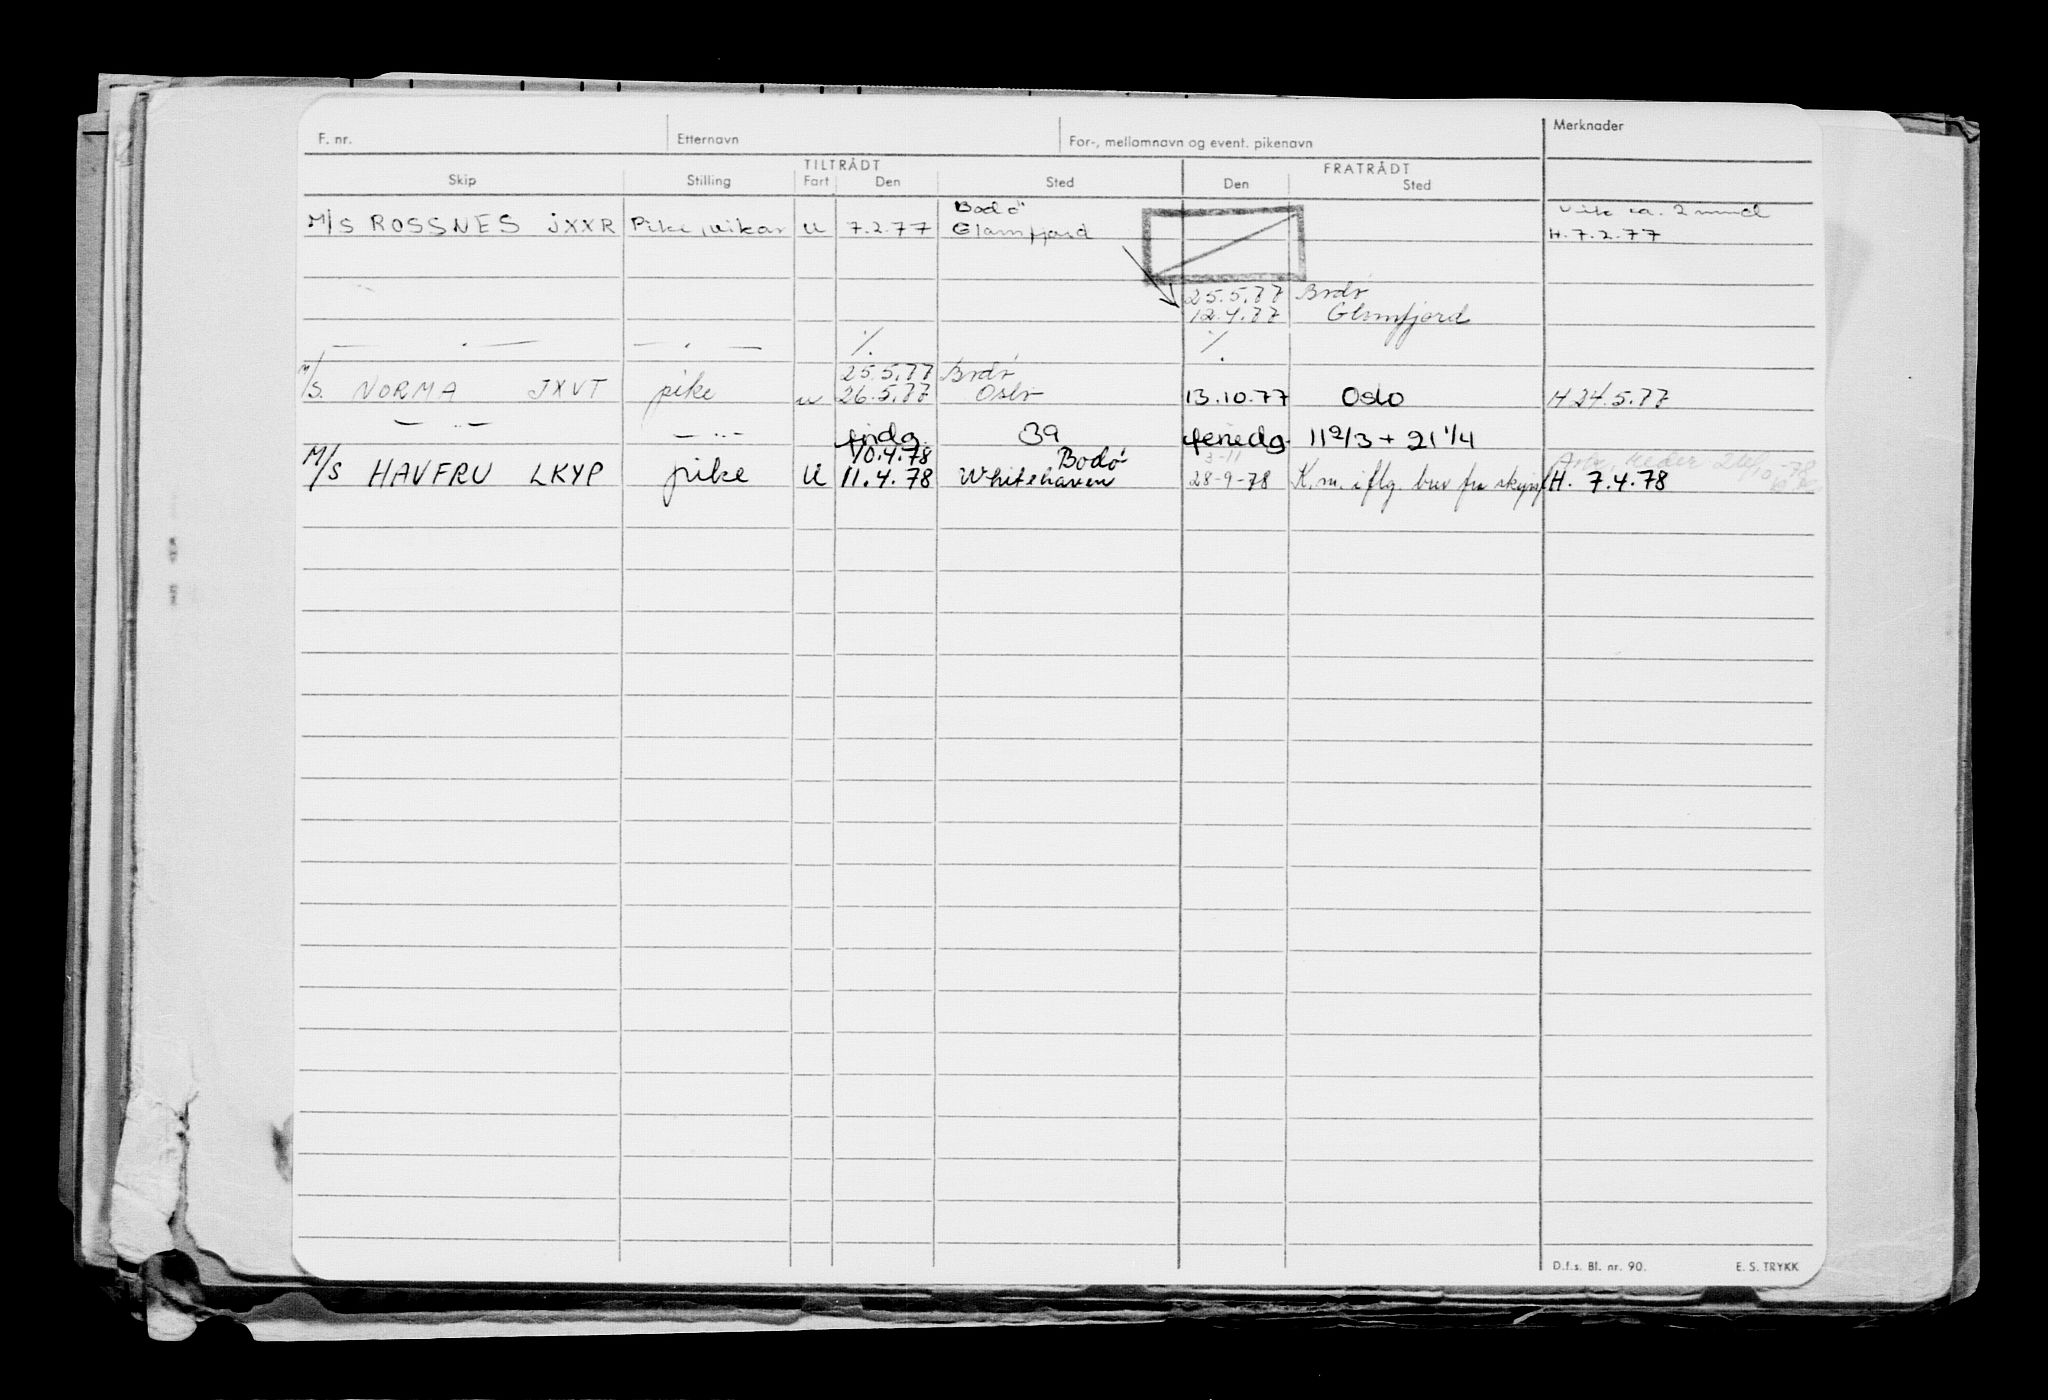 F. nr. Etternavn For-, mellomnavn og event. pikenavn Merknader
TILTRÅDT FRATRÅDT
Skip Stilling Fart Den Sted Den Sted
Bodö Vik ca. 2 mnd
M/S ROSSNES JXXR Pike, vikar U 7.2.77 Glomfjord H. 7.2.77
25.5.77 Bodö
12.4.77 Glomfjord
— . — — . — ./. ./.
25.5.77 Bodö
M/S. NORMA JXVT pike u 26.5.77 Oslo 13.10.77 Oslo H 24.5.77
— .. — — .. — 39 feriedg. 11 2/3 + 21 1/4
10.4.78 Bodö 3-11
M/S HAVFRU LKYP pike U 11.4.78 Whitehaven 28-9-78 K.m. iflg. brev fra H. 7.4.78
D.f.s. Bl. nr. 90. E. S. TRYKK